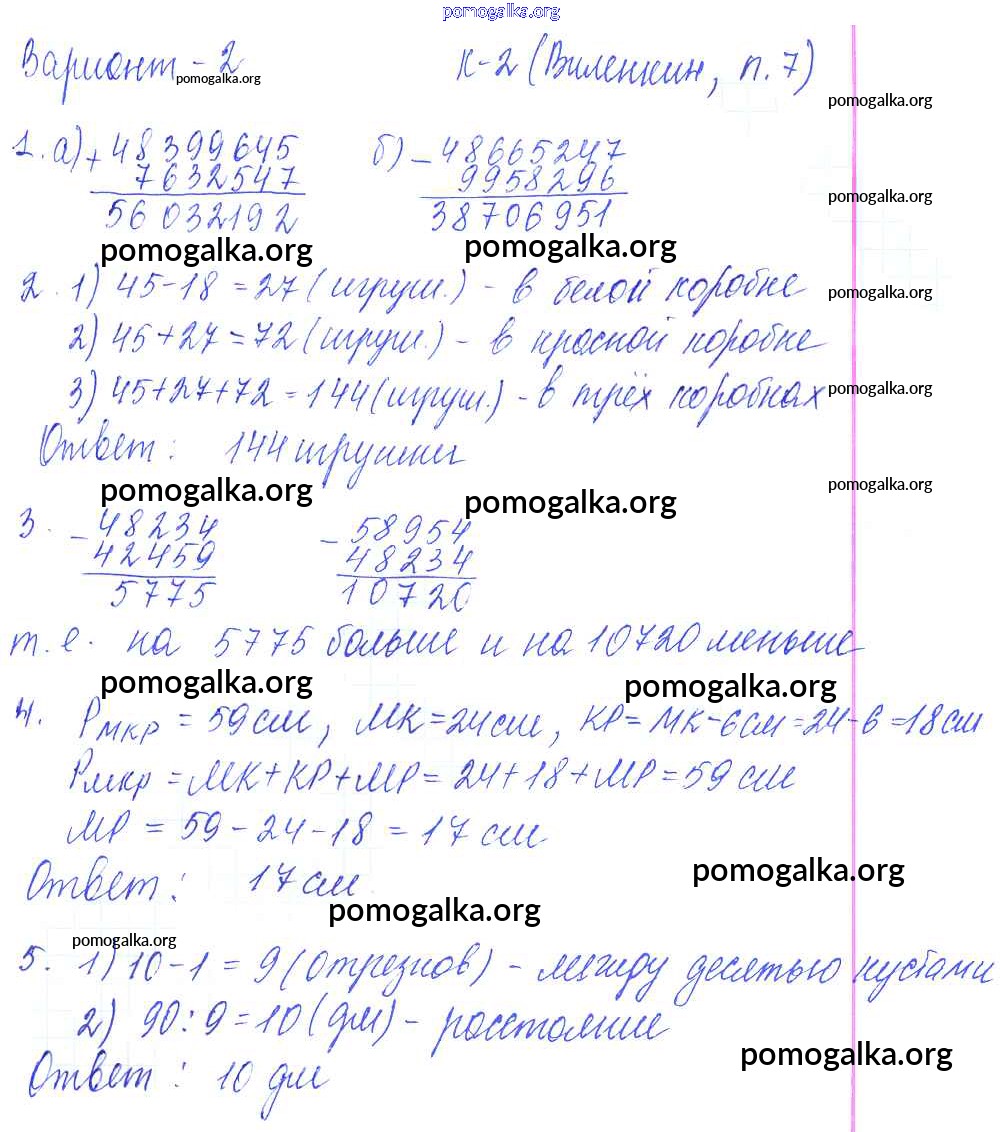 pomogalka.org
Вариант - 2 К-2 (Виленкин, п. 7)
pomogalka.org
pomogalka.org
1. а) + 48399645 б) - 48665247
7632547 9958296
pomogalka.org
56032192 38706951
pomogalka.org pomogalka.org
2. 1) 45-18 = 27 (игруш.) - в белой коробке
pomogalka.org
2) 45+27=72 (игруш.) - в красной коробке
3) 45+27+72=144 (игруш.) - в трёх коробках
pomogalka.org
Ответ: 144 игрушки
pomogalka.org pomogalka.org pomogalka.org
3. - 48234 - 58954
42459 48234
5775 10720
т.е. на 5775 больше и на 10720 меньше
pomogalka.org pomogalka.org
4. PМКР = 59 см, МК = 24 см, КР = МК - 6 см = 24 - 6 = 18 см
PМКР = МК + КР + МР = 24 + 18 + МР = 59 см
МР = 59 - 24 - 18 = 17 см
Ответ: 17 см
pomogalka.org
pomogalka.org
pomogalka.org
5. 1) 10 - 1 = 9 (отрезков) - между десятью кустами
2) 90 : 9 = 10 (дм) - расстояние
pomogalka.org
Ответ: 10 дм